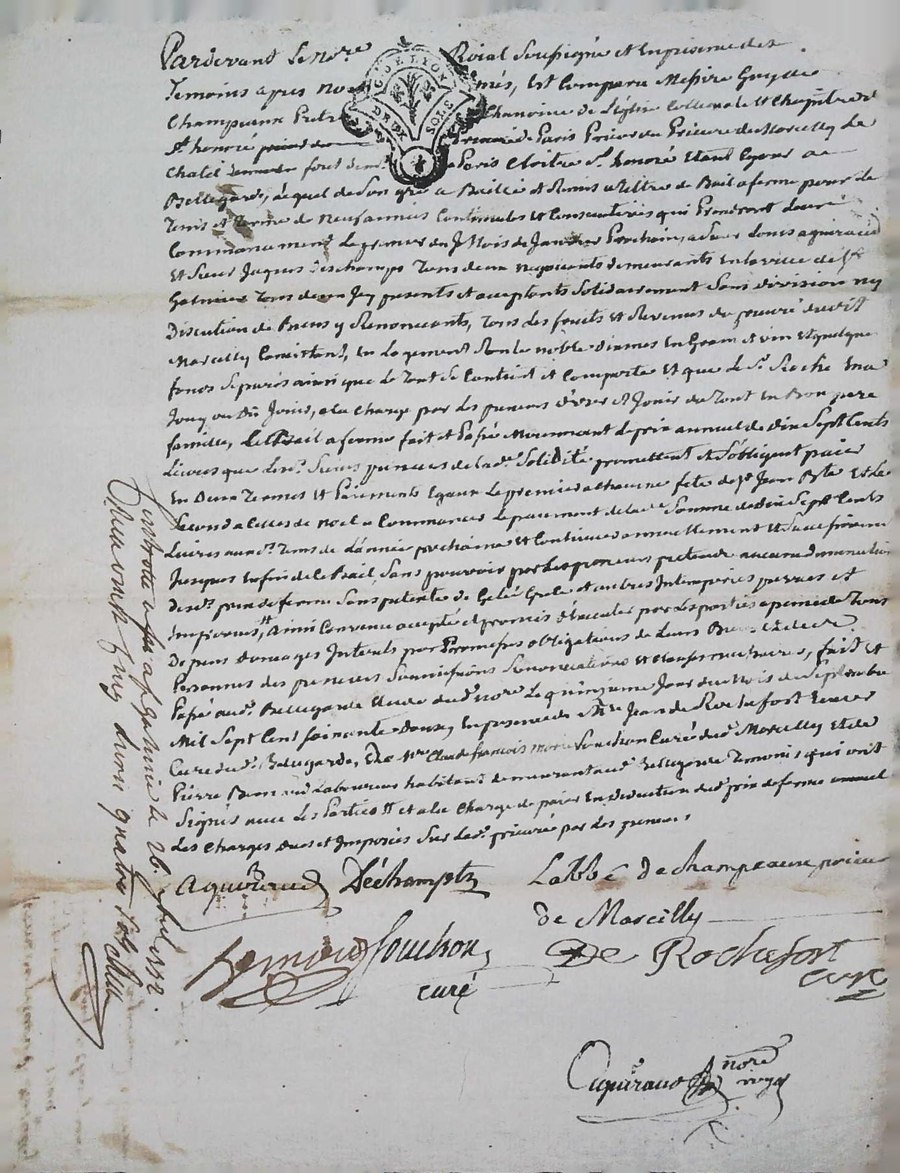 Pardevant le nore Roial Soussigné et en presence des
Temoins apres nommés, est Comparu Messire
Champeaux Pretre Chanoine de l'eglise Collegiale et Chapitre de
St honoré de Paris Prieur du Prieuré de Marcilly le
Chatel en foret Paris Cloitre St honoré etant Ce jour a
Bellegarde, lequel de son gré a Baillé et Remis a titre de Bail a ferme pour le
Tems et Terme de Neuf années Continueles et Consecutives qui Prendront leur
Commancement le premier du Mois de Janvier Prochain, a Sieur Louis aguiraud
et Sieur Jaques Deschamps Tous deux negotiants demeurants en la ville de St
Galmier Tous deux Icy presents et acceptants Solidairement Sans division ny
Discution de Biens y Renoncants, Tous les fruits et Revenus du prieuré dudit
Marcilly Consistant, en Logement Rente noble Dixmes en Grain et vin et quelque
fonds ainsi que le Tout se Contient et Comporte et que le Sr en a
Jouy ou Du Jouir, a la Charge par les preneurs d'user et Jouir du Tout en Bon pere
famille, le Bail a ferme fait et Passé Moyennant le prix annuel de dix Sept Cents
Livres que les Srs preneurs de lade Solidité promettent et S'obligent paier
en Deux Termes et Paiements Egaux le premier a chacune fete de St Jean Bte et le
Second a Celles de Noel a Commancer le paiement de lade Somme de dix Sept Cents
Livres aux ds Tems de l'année prochaine et Continuer annuellement et Successivement
Jusques en fin de le Bail, Sans pouvoir par les preneurs pretendre aucune diminution
desds prix de ferme Sous pretexte de Gelée Grele et autres Intemperies prevues et
Imprevues, Ainsi Convenu accepté et promis d'executer par les parties a peine de Tous
Depens Domages Interets par obligations de Leurs Biens et de
Personnes des preneurs Soumissions Renonciations et Clauses, fait et
Passé aud. Bellegarde Etude dud. nore Le quinzieme Jour du Mois de Septembre
Mil Sept Cent Soixante Douze, en presence de Mre Jean de Rochefort
Curé dud. Bellegarde, De Mre Claude francois Marie Souchon Curé dud. Marcilly et de
Pierre Laboureur habitant demeurant aud. Bellegarde Temoins qui ont
Signés avec Les Parties et a la Charge de paier en Deduction du prix de ferme annuel
les Charges Dues et Imposées Sur led. prieuré par les preneurs
Aguiraud Déchampts Labbé de champeaux prieur
de Marcilly
Souchon De Rochefort
curé curé
Aguiraud nore
royal
G. DE LYON
DEUX SOLS
a St galmier le 26 1772